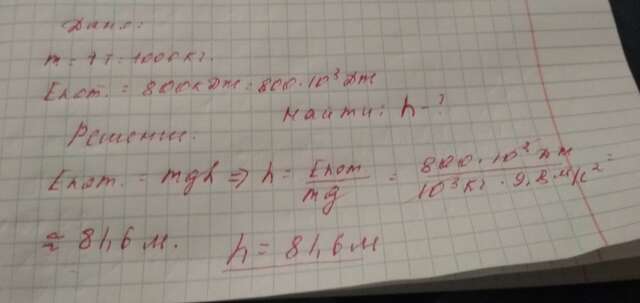 Дано:
m = 1т = 1000кг.
Епот. = 800кДж = 800·10³Дж
Найти: h-?
Решение.
Епот. = mgh ⇒ h = Епот/mg = 800·10³Дж/10³кг·9,8м/с² =
≈ 81,6 м. h = 81,6 м